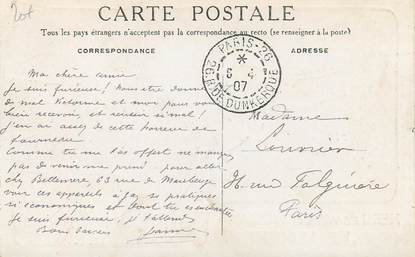 CARTE POSTALE
Tous les pays étrangers n'acceptent pas la correspondance au recto (se renseigner à la poste)
CORRESPONDANCE
ADRESSE
PARIS-26
26.R. DE DUNKERQUE
6 4
07
Ma chère amie
Je suis furieuse! Nous être donné
de mal Victorine et moi pour vous
bien recevoir, et réussir si mal!
J'en ai assez de cette horreur de
fourneau.
Comme tu me l'as offert ne manques
pas de venir me prendre pour aller
chez Bettemere, 63 rue de Maubeuge
voir ces appareils à gaz si pratiques
si économiques et dont tu es enchantée
Je suis furieuse, je t'attends
Bons baisers
Madame
Louvrier
rue Falguière
Paris